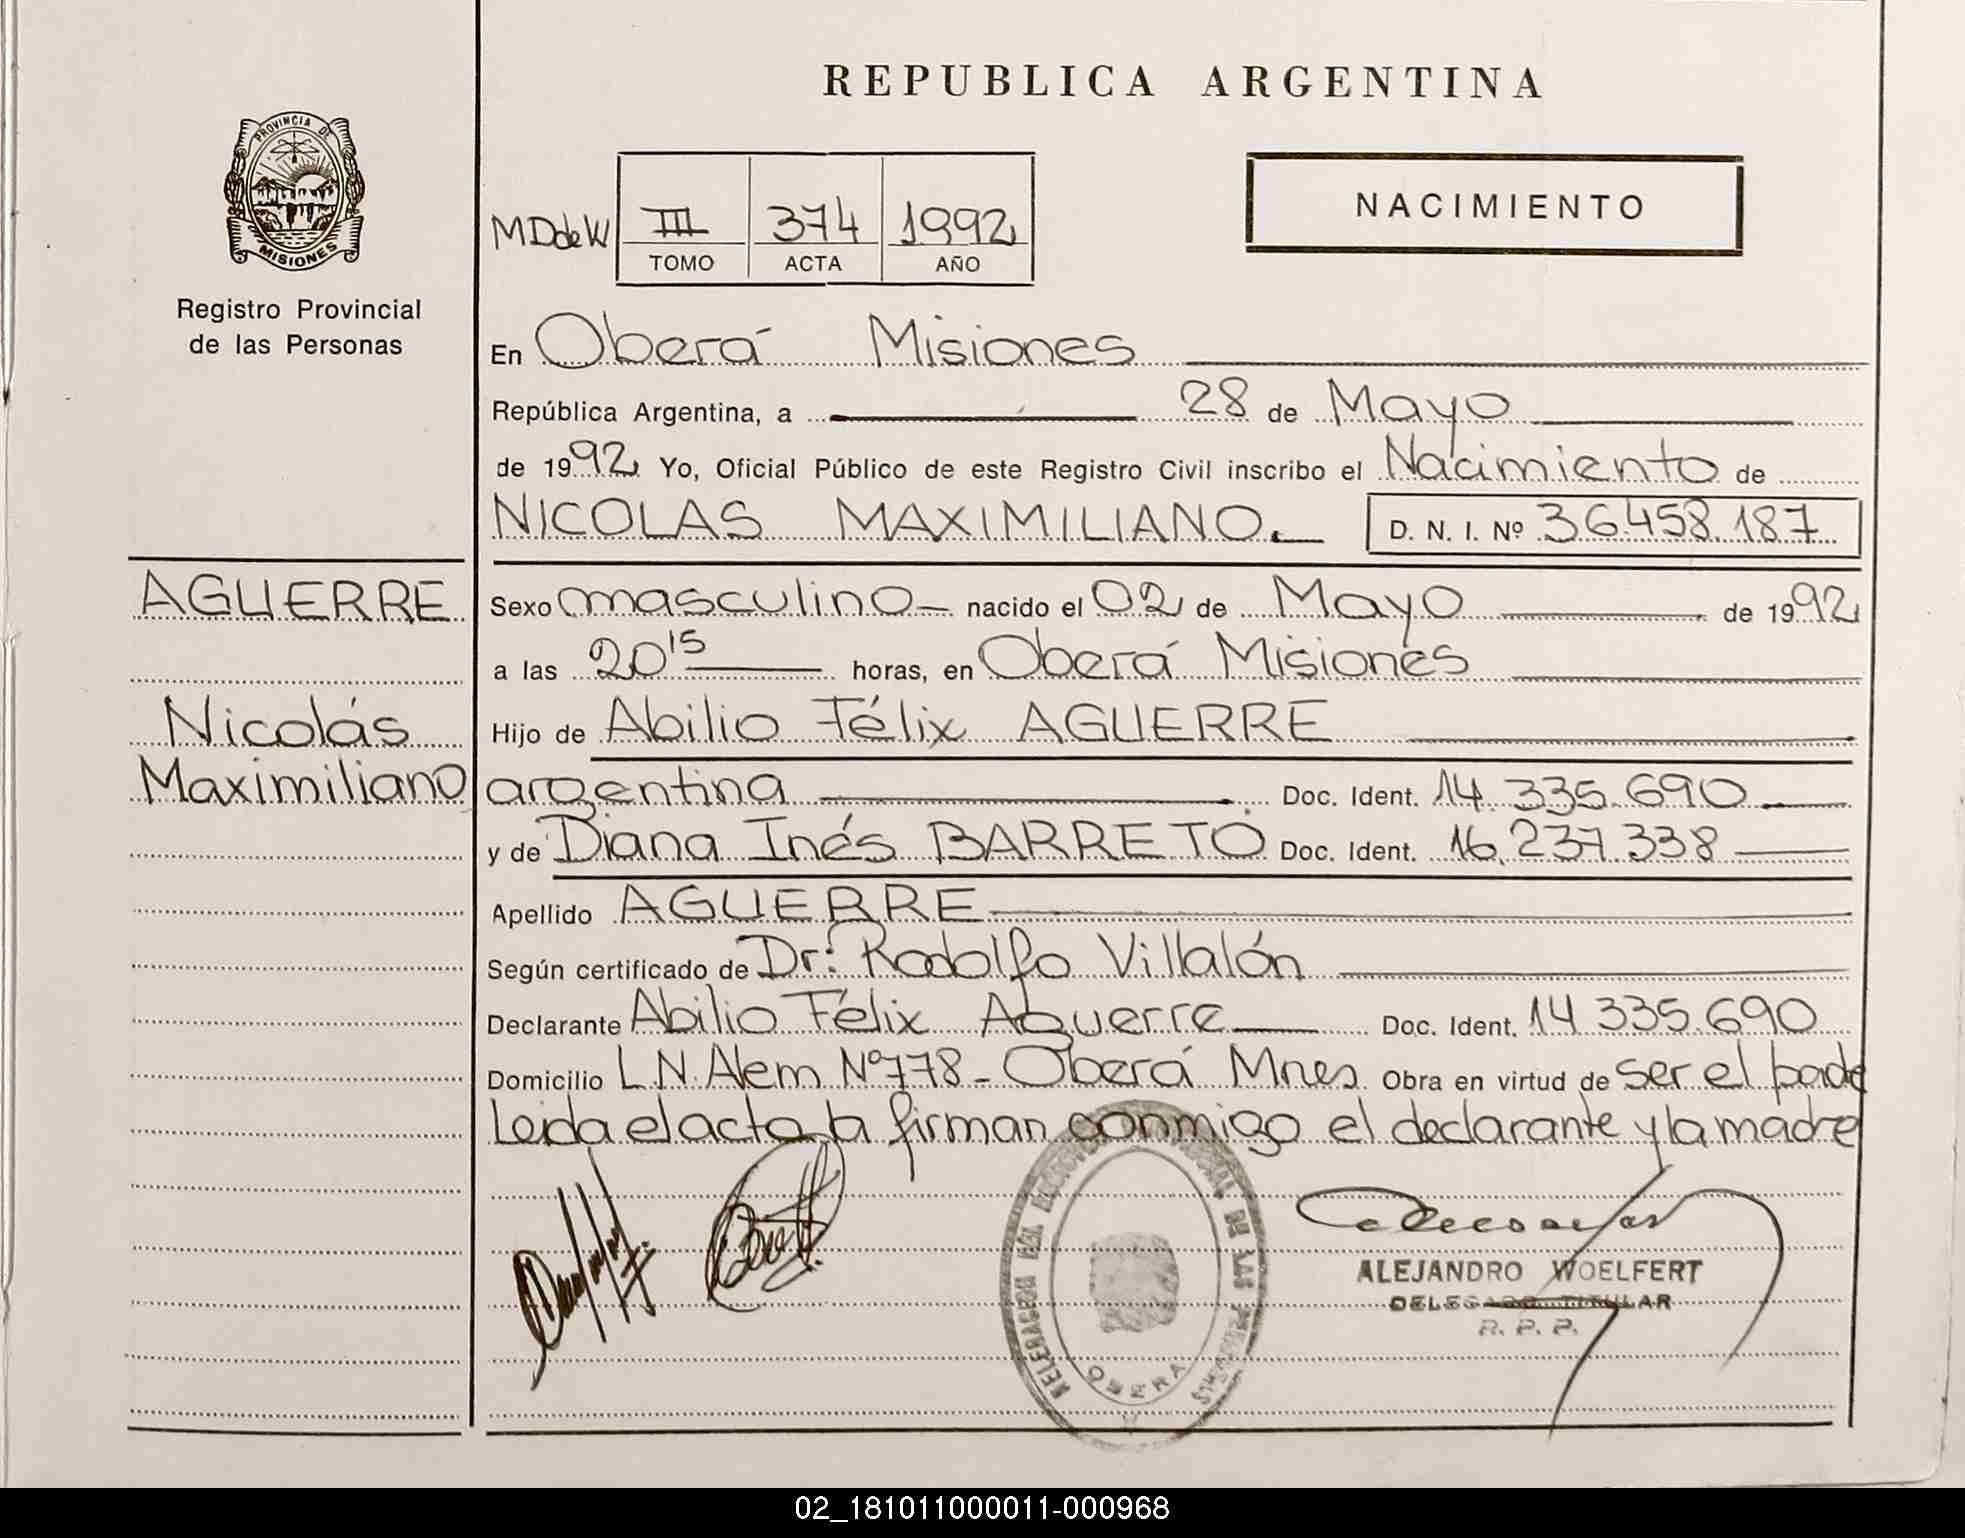 REPUBLICA ARGENTINA
PROVINCIA DE
MISIONES
Registro Provincial
de las Personas
MDdeW
III 374 1992
TOMO ACTA AÑO
NACIMIENTO
En Oberá Misiones
República Argentina, a 28 de Mayo
de 1992 Yo, Oficial Público de este Registro Civil inscribo el Nacimiento de
NICOLAS MAXIMILIANO. D. N. I. Nº 36.458.187
AGUERRE
Nicolás
Maximiliano
Sexo masculino nacido el 02 de Mayo de 1992
a las 20 15 horas, en Oberá Misiones
Hijo de Abilio Félix AGUERRE
argentina Doc. Ident. 14.335.690
y de Diana Inés BARRETO Doc. Ident. 16.237.338
Apellido AGUERRE
Según certificado de Dr: Rodolfo Villalón
Declarante Abilio Félix Aguerre Doc. Ident. 14.335.690
Domicilio L.N. Alem Nº 778 - Oberá Mnes. Obra en virtud de ser el padre
Leida el acta la firman conmigo el declarante y la madre
OBERA
ALEJANDRO WOELFERT
DELEGADO TITULAR
R. P. P.
02_181011000011-000968